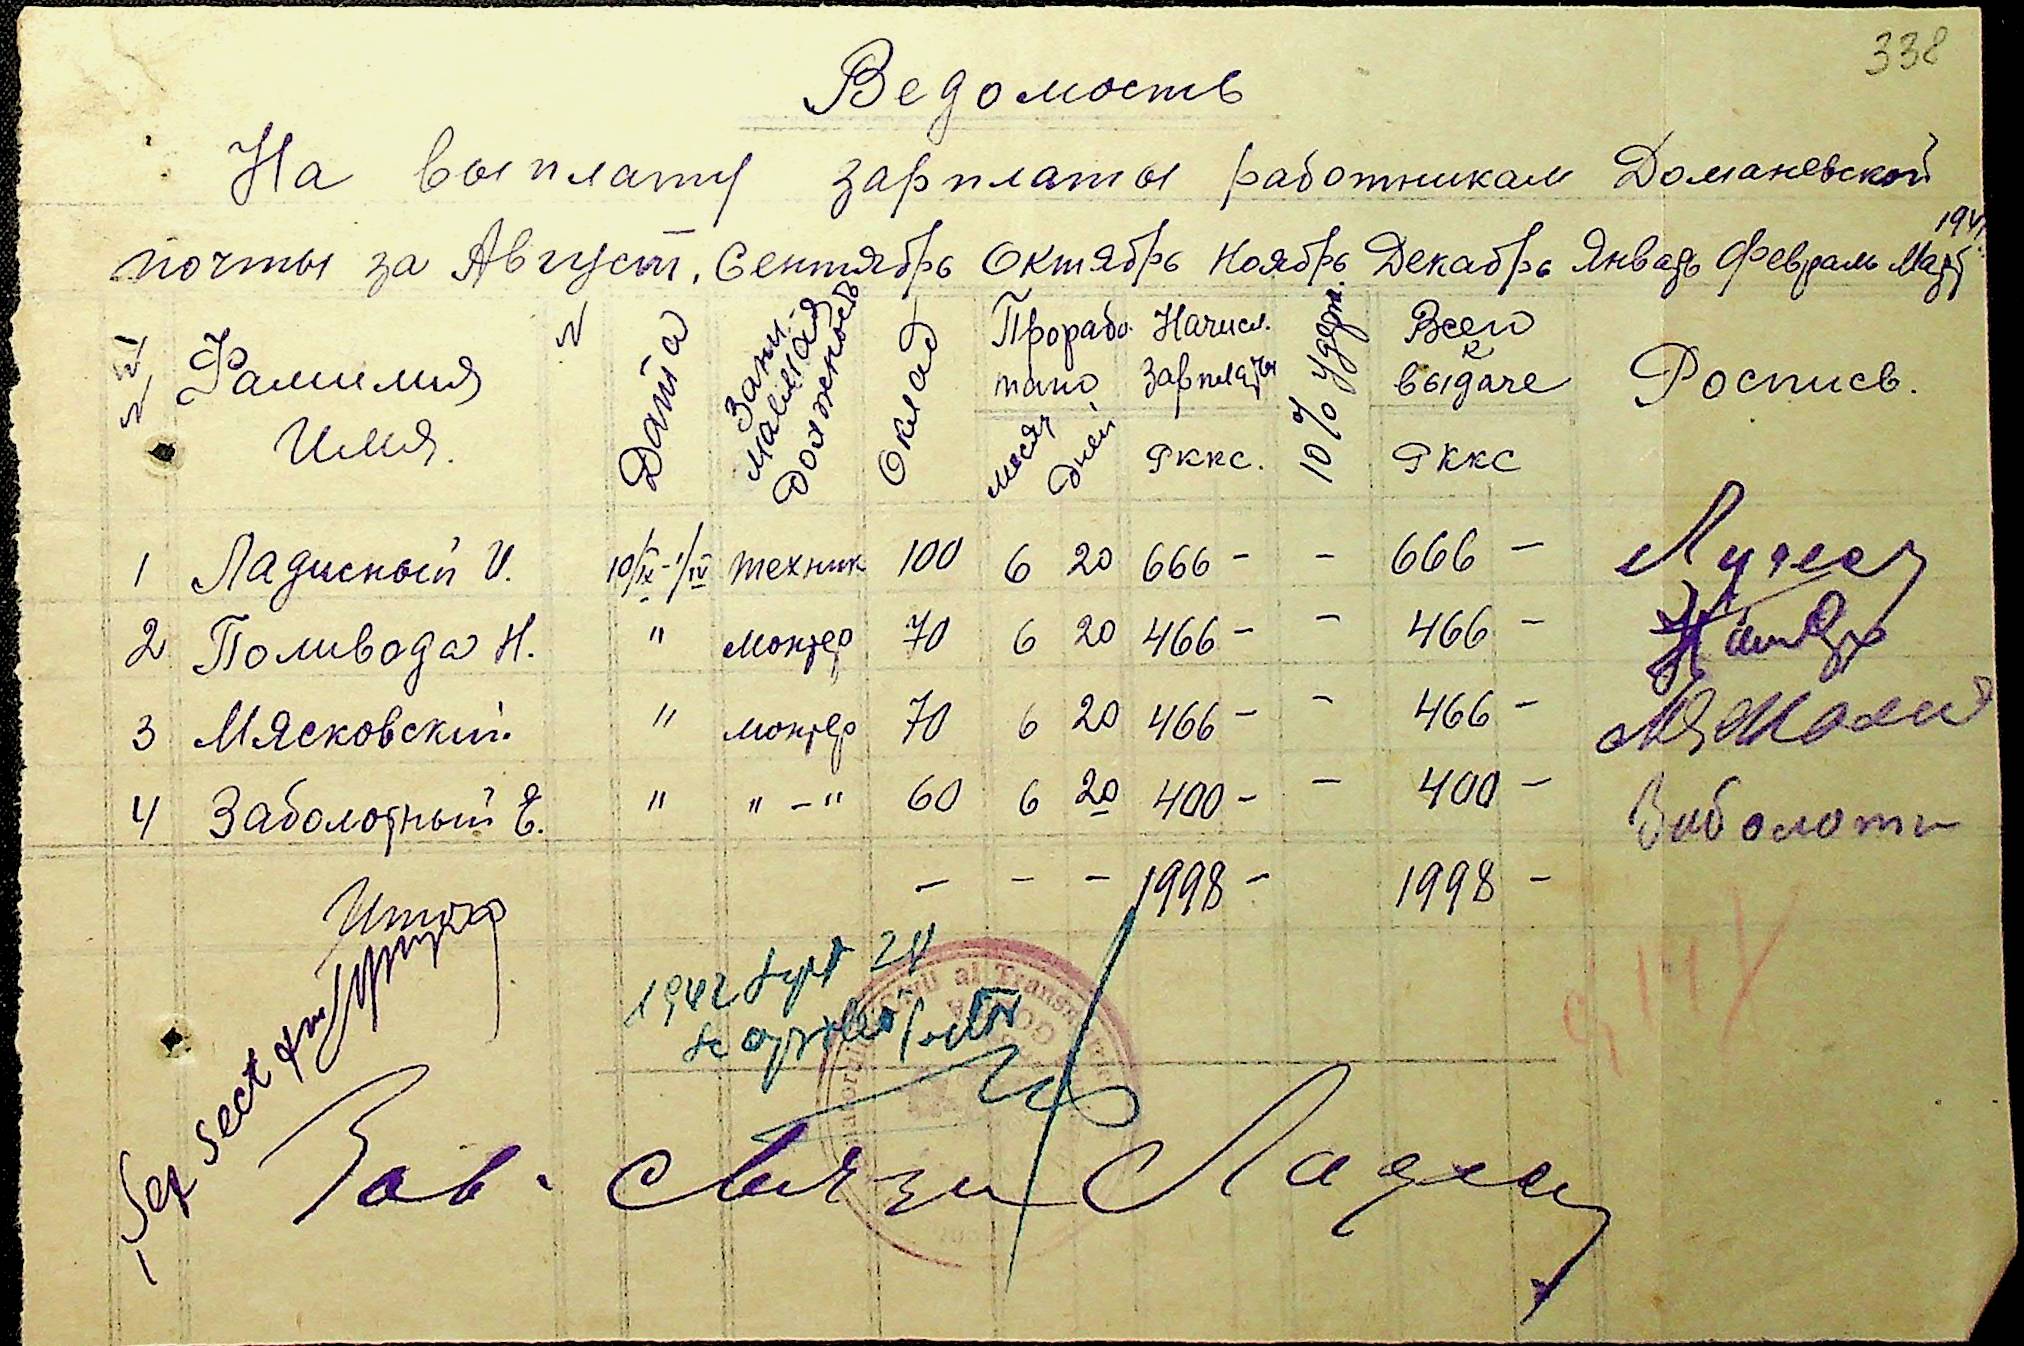 338
Ведомость
На выплату зарплаты работникам Доманевской
194
почты за Август, Сентябрь Октябрь Ноябрь Декабрь Январь Февраль Март
№ Фамилия Имя. № Дата Занимаемая должность Оклад Проработано месяц дней Начисл. зарплаты РККС. 10% удерж. Всего к выдаче РККС Роспись.
1 Ладисный И. 10/IX-1/IV техник 100 6 20 666 - - 666 -
2 Поливода Н. " монтер 70 6 20 466 - - 466 -
3 Мясковский " монтер 70 6 20 466 - - 466 -
4 Заболотный Е. " " - " 60 6 20 400 - - 400 - Заболотн
Итого - - - 1998 - 1998 -
1942 Sept 24
al Transn
Șef sect
Зав. связи